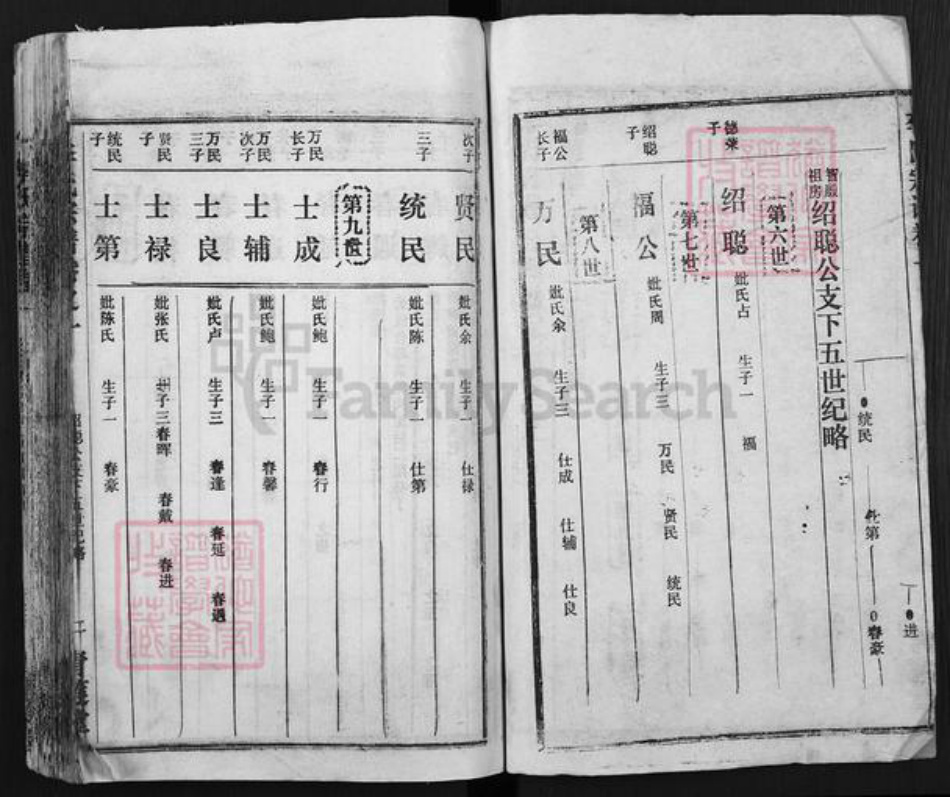 统民
进
第
春豪
绍聪公支下五世纪略
第六世
德荣子
绍聪
妣氏占 生子一 福
第七世
绍聪子
福公
妣氏周 生子三 万民 贤民 统民
第八世
福公长子
万民
妣氏余 生子三 仕成 仕辅 仕良
次子
贤民
妣氏余 生子一 仕禄
三子
统民
妣氏陈 生子一 仕第
第九世
万民长子
士成
妣氏鲍 生子一 春行
万民次子
士辅
妣氏鲍 生子一 春馨
万民三子
士良
妣氏卢 生子三 春逢 春延 春遇
贤民子
士禄
妣张氏 生子三 春晖 春戴 春进
统民子
士第
妣陈氏 生子一 春豪
FamilySearch